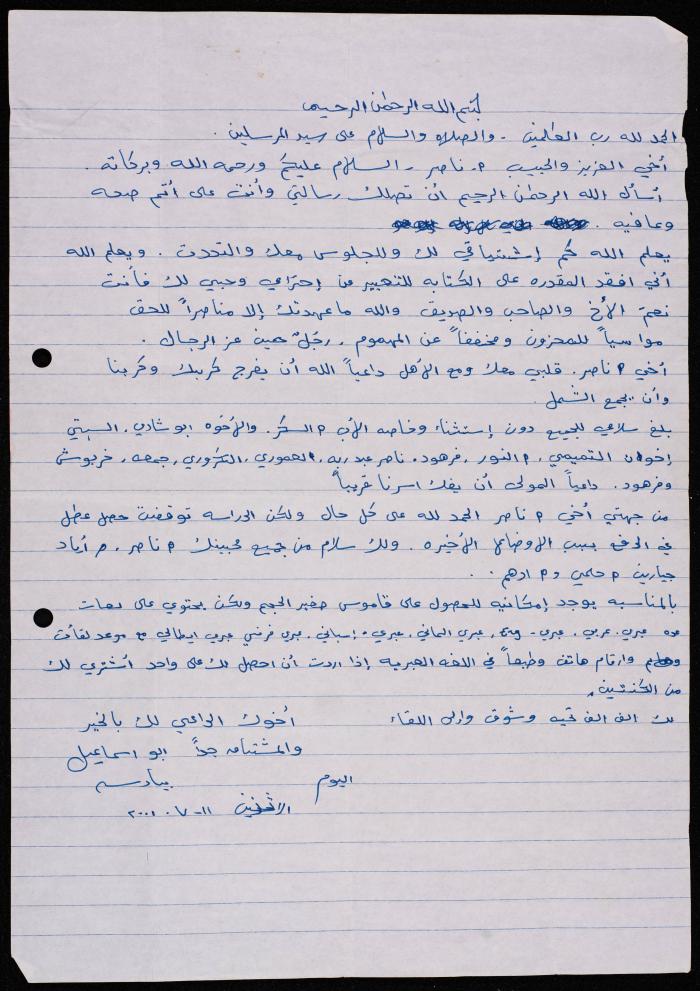 بسم الله الرحمن الرحيم
الحمد لله رب العالمين . والصلاه والسلام على سيد المرسلين .
أخي العزيز والحبيب م. ناصر . السلام عليكم ورحمه الله وبركاته .
أسأل الله الرحمن الرحيم ان تصلك رسالتي وأنت على أتم صحه
وعافيه .
يعلم الله كم إشتياقي لك وللجلوس معك والتحدث . ويعلم الله
أني افقد المقدره على الكتابه للتعبير عن إحترامي وحبي لك فأنت
نعم الأخ والصاحب والصديق والله ماعهدتك إلا مناصراً للحق
مواسياً للمحزون ومخففاً عن المهموم . رجل حين عز الرجال .
أخي م ناصر . قلبي معك ومع الأهل داعياً الله أن يفرج كربك وكربنا
وأن يجمع الشمل .
بلغ سلامي للجميع دون إستثناء وخاصه الأب م السكر . والأخوه ابو شادي .
إخوان التميمي . م النور . فرهود . ناصر عبد ربه . العموري . التكروري . جمعه . خربوش
وفرهود . داعياً المولى أن يفك اسرنا قريباً
من جهتي أخي م ناصر الحمد لله على كل حال ولكن الدراسه توقفت حصل عطل
في الدفع بسبب الأوضاع الأخيره . ولك سلام من جميع محبينك م ناصر . م أياد
جبارين م حلمي و م ادهم . .
بالمناسبه يوجد إمكانيه للحصول على قاموس صغير الحجم ولكن يحتوي على لغات
عده عبري . عربي . عبري - عبري الماني . عبري - إسباني . عبري فرنسي عبري ايطالي مع موعد لقاءات
وارقام هاتف وطبعاً في اللغه العبريه إذا اردت أن احصل لك على واحد أشتري لك
من الكنتين .
لك الف الف تحيه وشوق وإلى اللقاء
أخوك الداعي لك بالخير
والمشتاق جداً ابو اسماعيل
اليوم
الاثنين ١١-٧-٢٠٠١